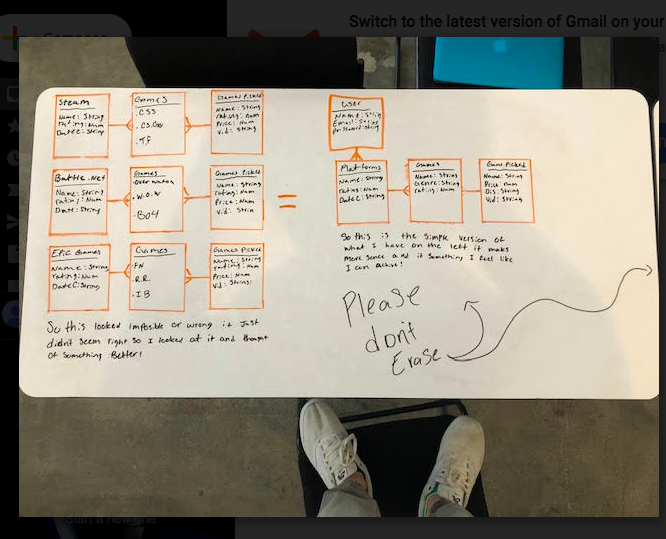 Switch to the latest version of Gmail on your
Compose
Steam
Name: String
rating: Num
Date C: String
Games
. CSS
. CS.GO
. T.F
Games Picked
Name: String
rating: Num
Price: Num
Vid: String
Battle.Net
Name: String
rating: Num
Date: String
Games
-Over watch
-W.O.W
-BO4
Games Picked
Name: String
rating: Num
Price: Num
Vid: Strin
Epic Games
Name: String
rating: Num
Date C: String
Games
-FN
-R.R.
-IB
Games Picked
Name: String
rating: Num
Price: Num
Vid: String:
So this looked Imposible or wrong it Just
didn't seem right so I looked at it and thought
of something Better!
=
User
Name: String
Email: String
password: String
Platforms
Name: String
rating: Num
Date C: String
Games
Name: String
Genre: String
rating: Num
Game Picked
Name: String
Price: Num
Dis: String
Vid: String
So this is the Simple version of
what I have on the left it makes
more sence and it something I feel like
I can achive!
Please
don't
Erase
Start a new one